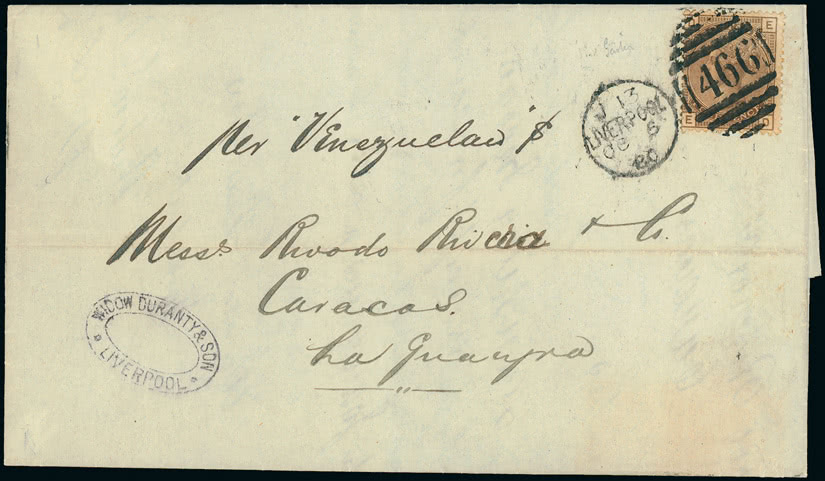 E
466
ENCE
E D
J 13
LIVERPOOL
OC 5
80
per "Venezuelan" s
Messrs. Rivodo Rivera & Co.
Caracas.
La Guayra
WIDOW DURANTY & SON
LIVERPOOL